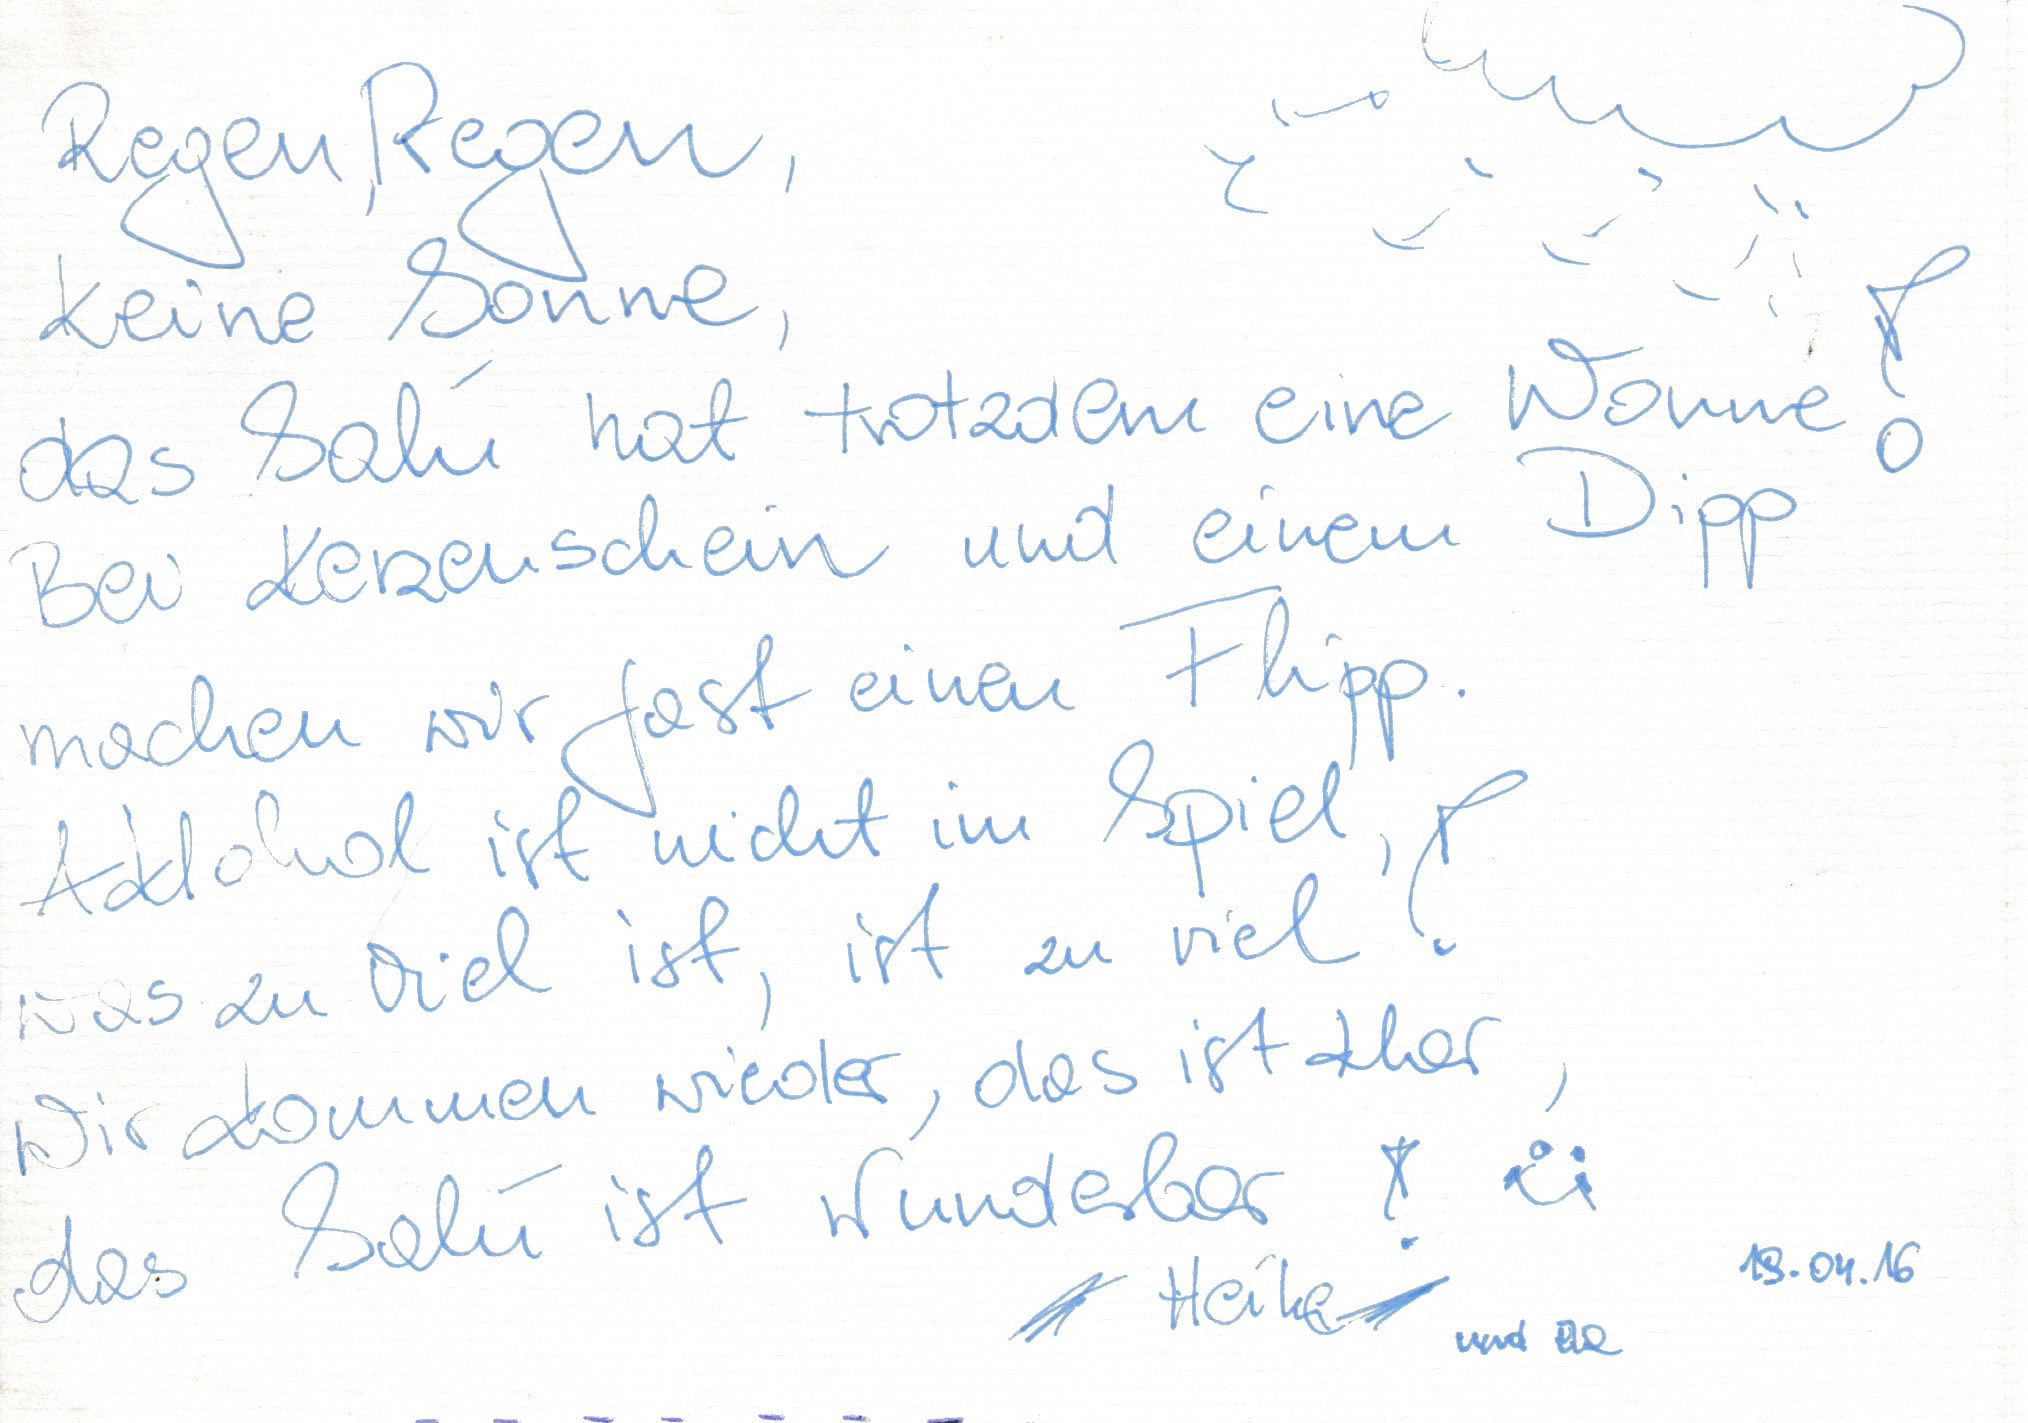 Regen, Regen,
keine Sonne,
das Salü hat trotzdem eine Wonne!
Bei Kerzenschein und einem Dipp
machen wir fast einen Flipp.
Alkohol ist nicht im Spiel,
was zu viel ist, ist zu viel!
Wir kommen wieder, das ist klar,
das Salü ist wunderbar!
Heike
und
19.04.16